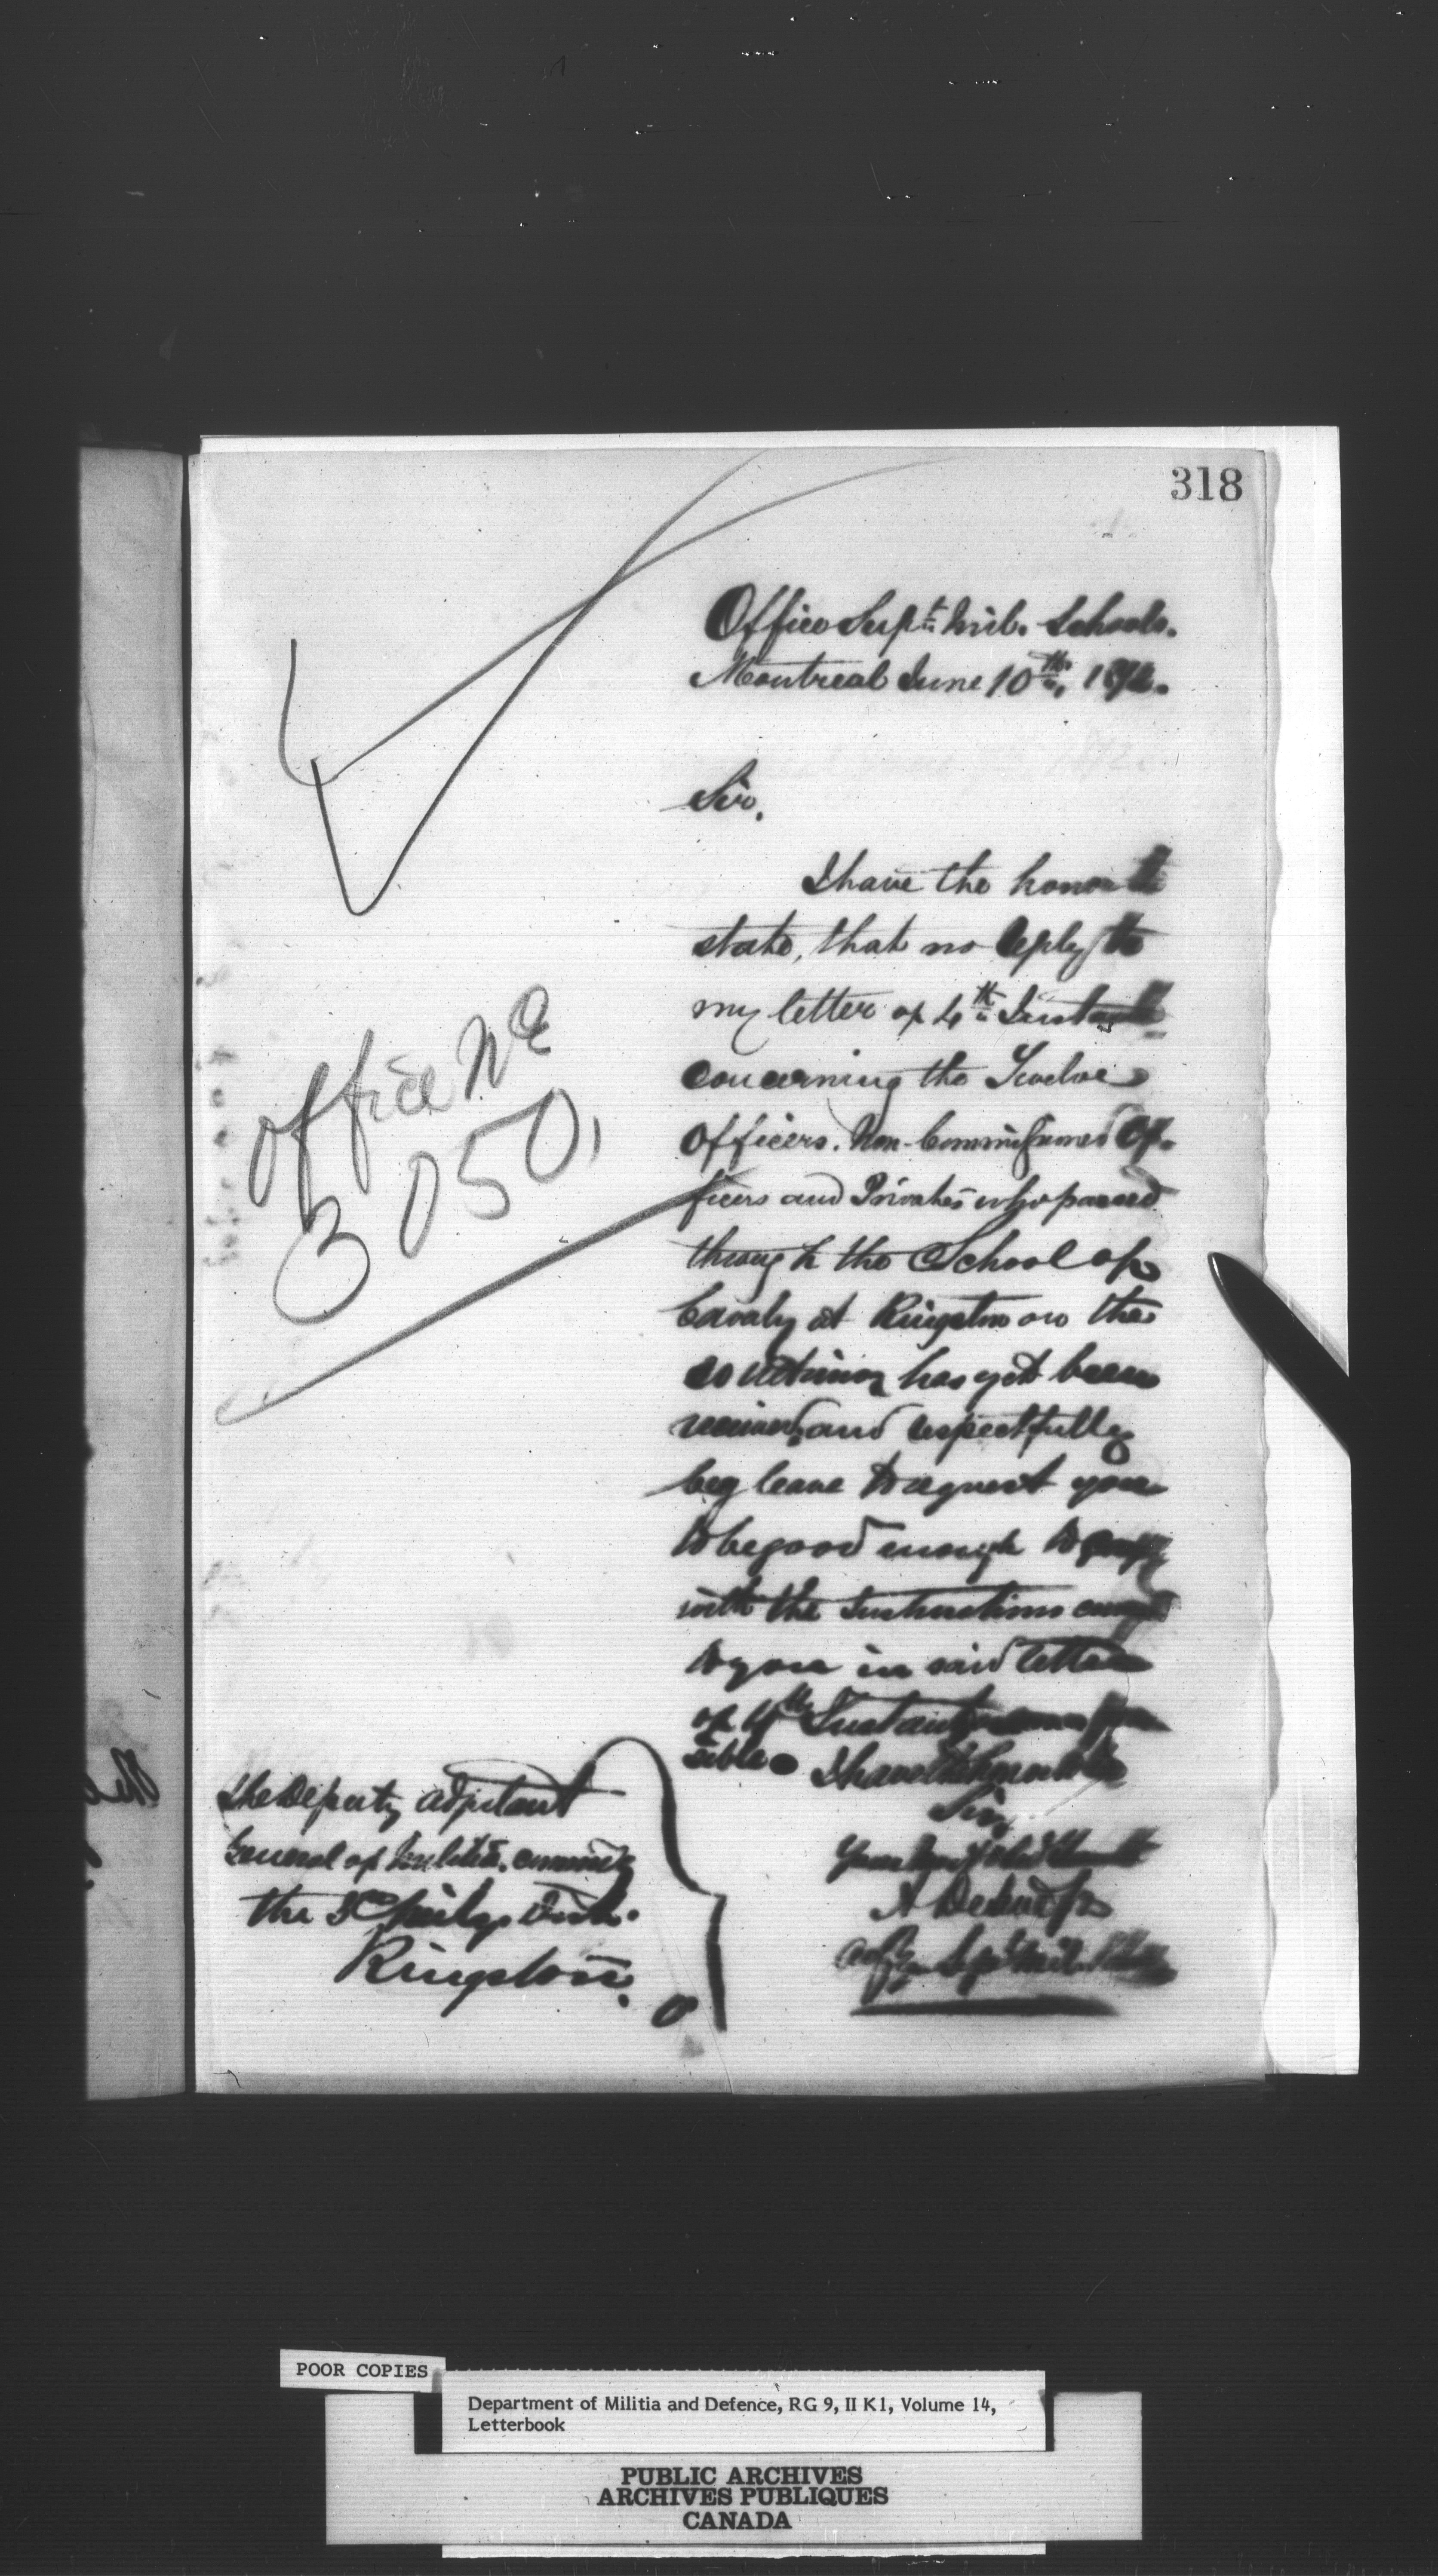 318
Office Supt. Mil. Schools.
Montreal June 10th, 1872.
Sir,
I have the honor to
state, that no reply to
my letter of 4th Instant
concerning the Twelve
Officers. Non-Commissioned Of-
ficers and Privates who passed
through the School of
Cavalry at Kingston on the
has yet been
received, and respectfully
beg leave to request you
to be good enough to comply
with the Instructions
to you in said letter
of 4th Instant
sible. I have the honor to be
Sir,
Your
A
Mil.
Office No
3050,
The Deputy Adjutant
General of Militia.
the 3rd Dist.
Kingston.
POOR COPIES
Department of Militia and Defence, RG 9, II K1, Volume 14,
Letterbook
PUBLIC ARCHIVES
ARCHIVES PUBLIQUES
CANADA